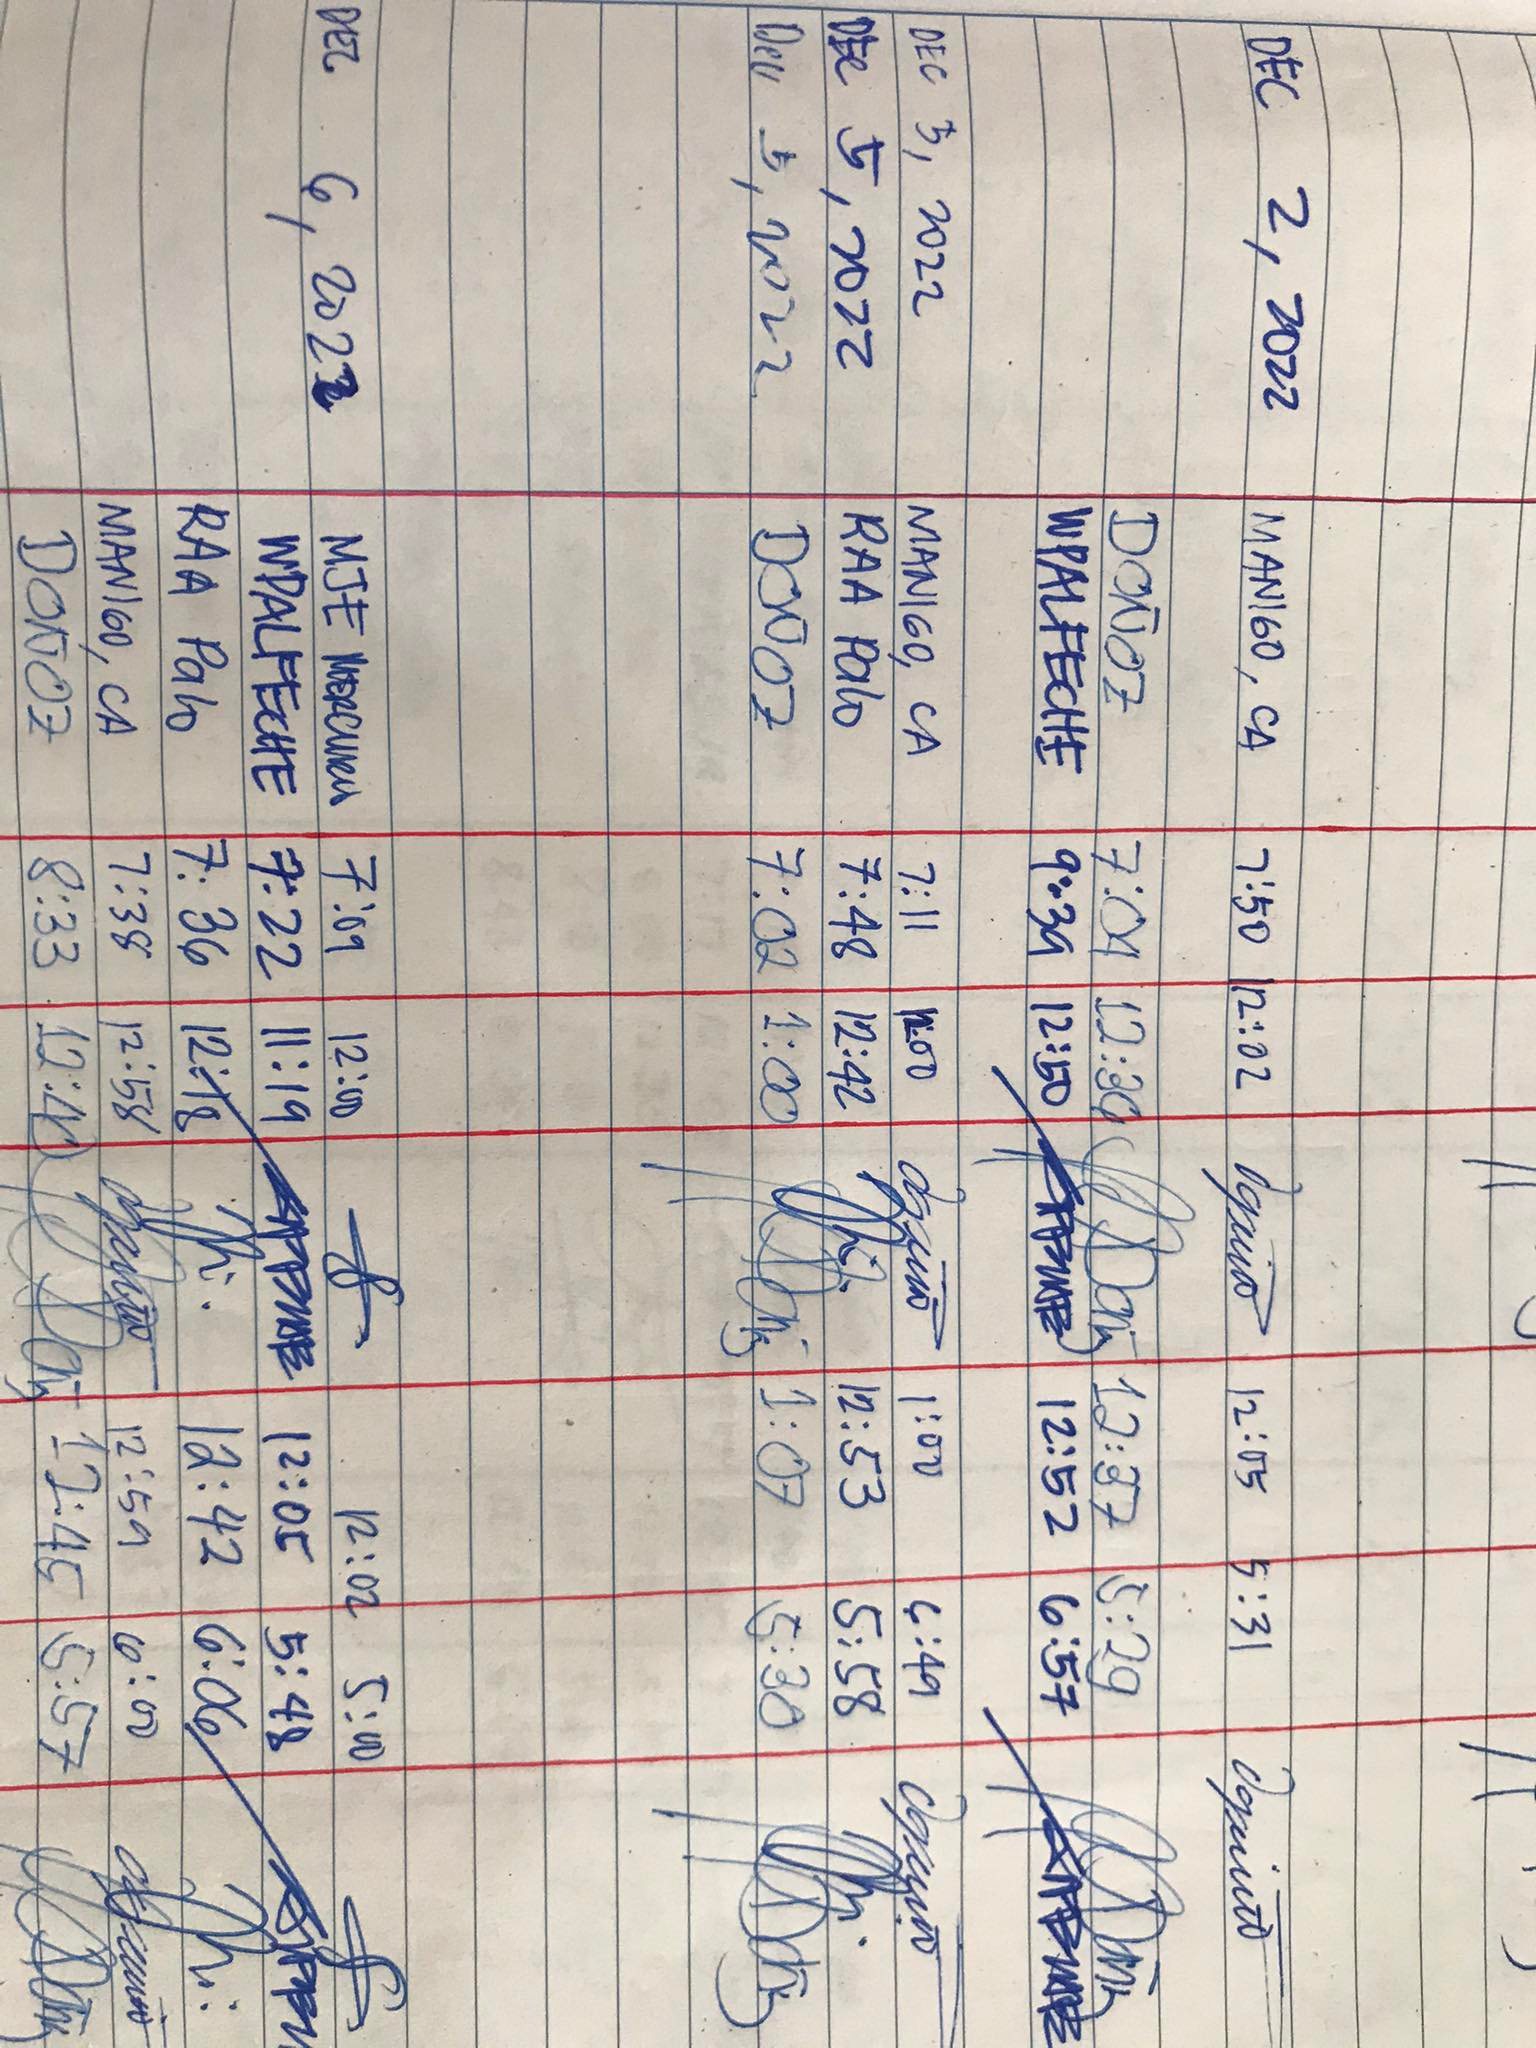 DEC 2, 2022 MANIGO, CA 7:50 12:02 12:05 5:31
DOÑOZ 7:04 12:30 12:37 5:29
WPALFECHE 9:39 12:50 12:52 6:57
DEC 5, 2022 MANIGO, CA 7:11 12:00 1:00 6:49
DEC 5, 2022 RAA Palo 7:48 12:42 12:53 5:58
DEC 5, 2022 DOÑOZ 7:02 1:00 1:07 5:30
DEC 6, 2022 MJE MERCURIO 7:09 12:00 12:02 5:00
WPALFECHE 7:22 11:19 12:05 5:48
RAA Palo 7:36 12:18 12:42 6:06
MANIGO, CA 7:38 12:58 12:59 6:00
DOÑOZ 8:33 12:40 12:45 5:57